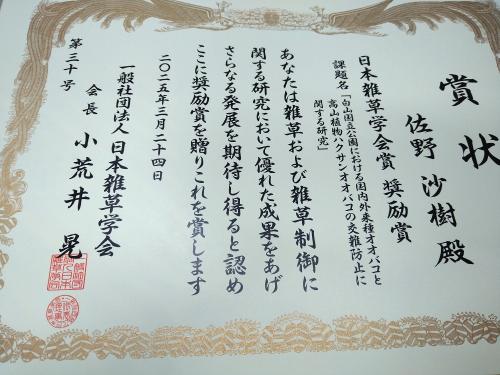 賞状
佐野沙樹殿
日本雑草学会賞 奨励賞
課題名「白山国立公園における国内外来種オオバコと
高山植物ハクサンオオバコの交雑防止に
関する研究」
あなたは雑草および雑草制御に
関する研究において優れた成果をあげ
さらなる発展を期待し得ると認め
ここに奨励賞を贈りこれを賞します
二〇二五年三月二十四日
一般社団法人 日本雑草学会
会長 小荒井 晃
第三十号